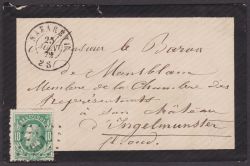 NAZARETH
25
Monsieur le Baron
de Montblanc
Membre de la Chambre des
Représentants
à son château
d'Ingelmunster
10